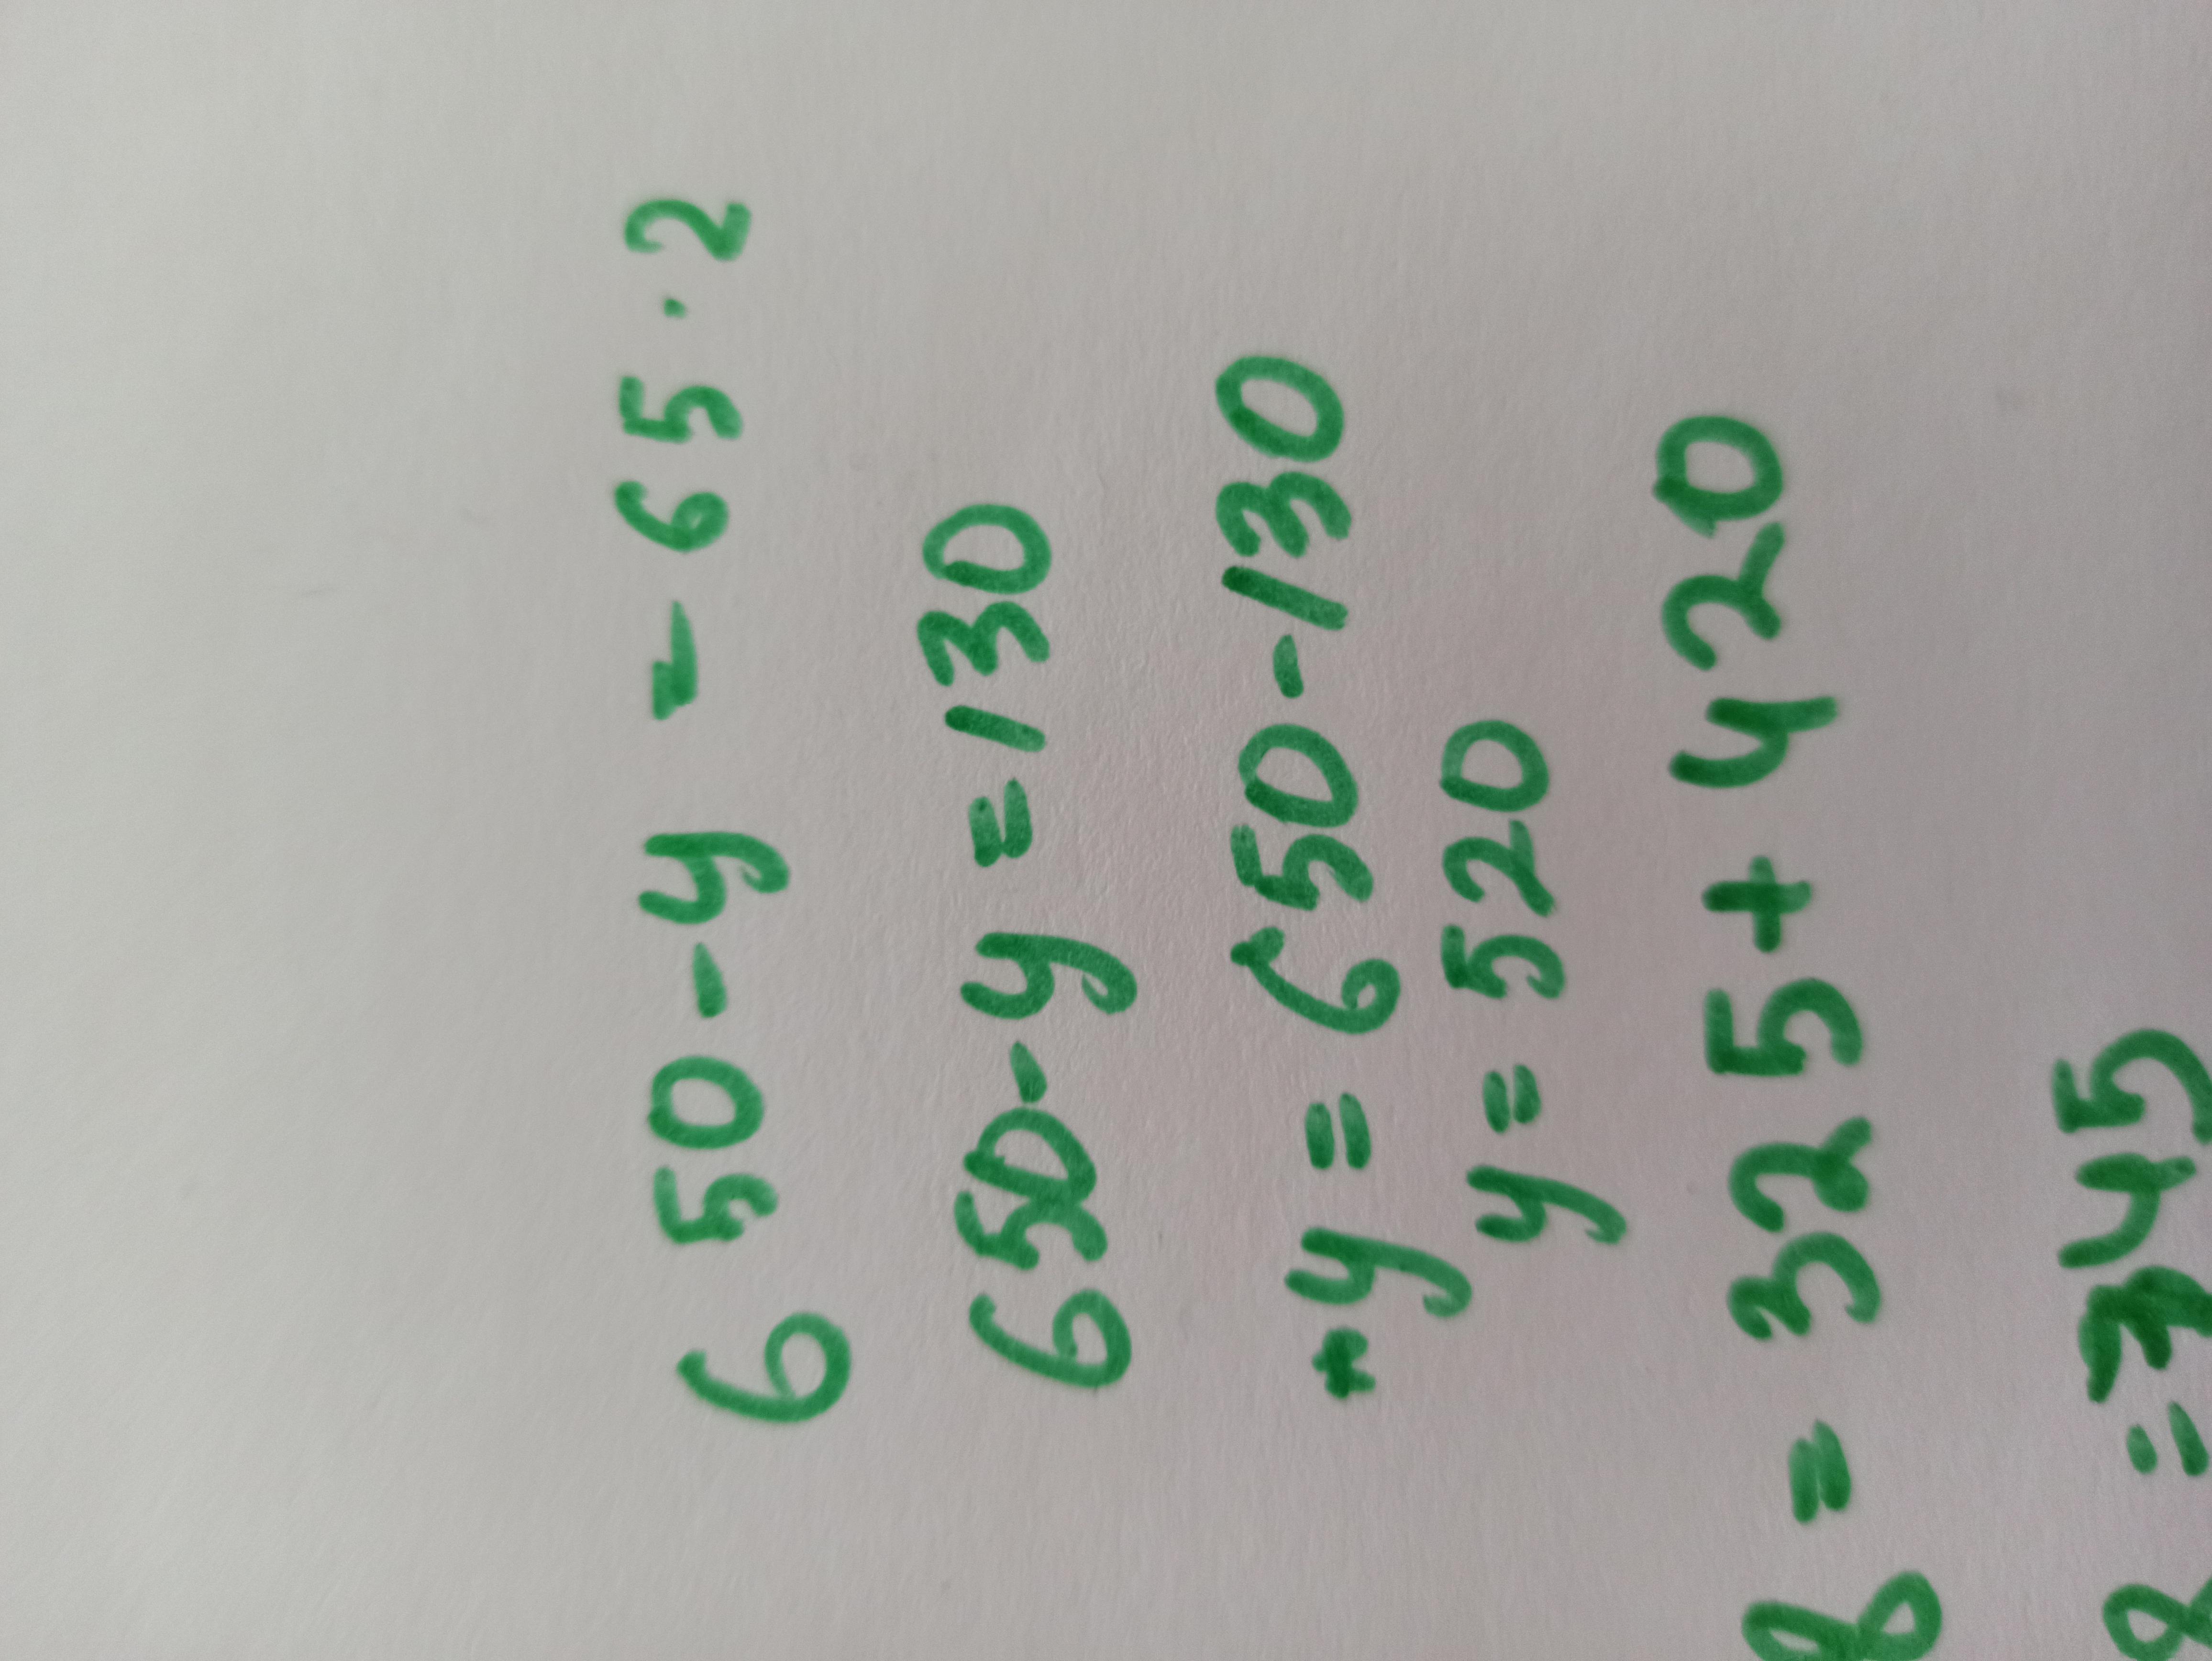 650-y = 65·2
650-y=130
y = 650-130
y = 520
8 = 325+420
8 = 745